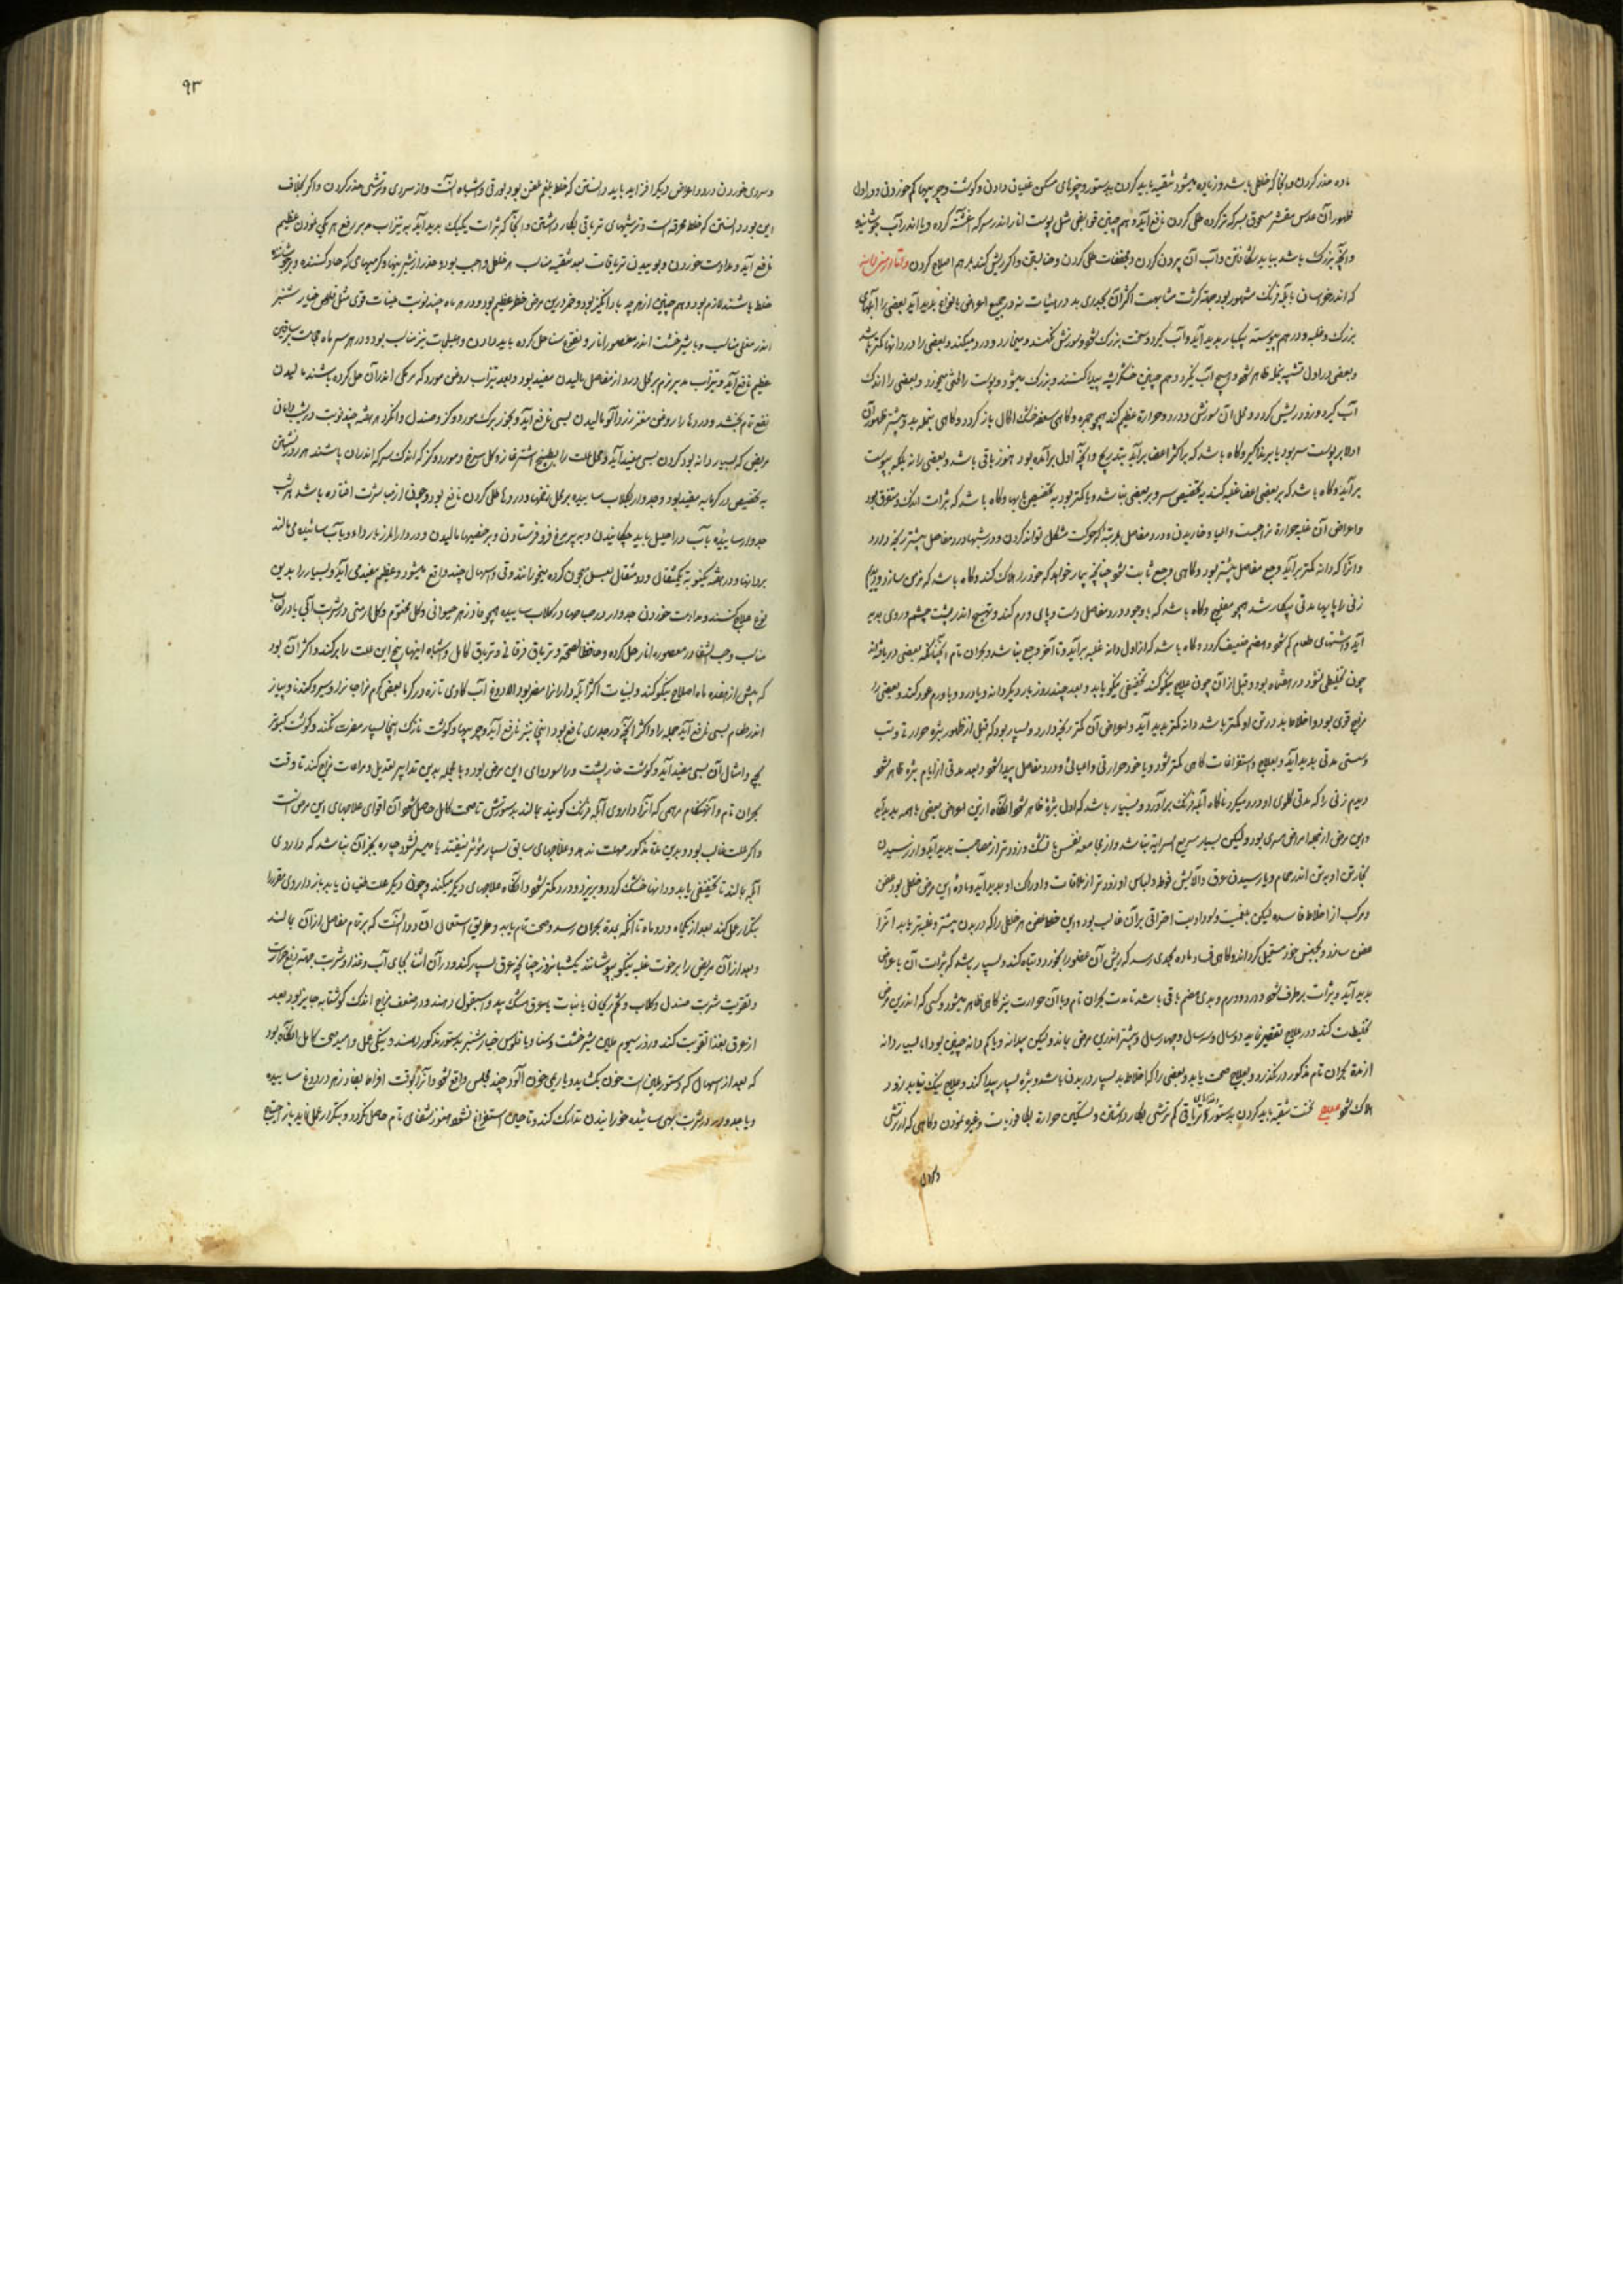 ماده حذر کردن و آنجا که خلطی باشد و زیاده میشود تنقیه باید کردن بدستور و چیزهای مسکن غلیان دادن و گوشت و چربیها کم خوردن و در اول
ظهور آن عدس مقشر مسحوق بسرکه تر کرده طلی کردن نافع آید و هم چنین قوابض مثل پوست انار اندر سرکه آغشته کرده و یا اندر آب جوشانیده
و آنچه بزرگ باشد بباید شکافتن و آب آن بیرون کردن و مجففات طلی کردن و اگر ریش کند بمرهم اصلاح کردن
که اندر خراسان بآبله فرنگ مشهور بود جهة کثرت مشابهت اکثر آن بجدری بد در هیئات نه در جمیع اعراض بانواع پدید آید بعضی را آبلهای
بزرگ و غلبه و در هم پیوسته بیکبار پدید آید و آب گیرد و سخت بزرگ شود و سوزش کند و میخارد و درد میکند و بعضی را در دانها کمتر باشد
و بعضی در اول ظاهر شود و هیچ آب نگیرد و هم چنین خشک ریشه پیدا کنند و بزرگ میشود و پوست را میخورد و بعضی را اندک
آب گیرد و زود ریش گردد و محل آن سوزش و درد و حرارة عظیم کند همچو جمره و گاهی
اولا بر پوست سر بود یا بر مذاکیر و گاه باشد که بر اکثر اعضا برآید بتدریج و آنچه اول برآمده بود هنوز باقی باشد و بعضی را نه یکبه پیوست
برآید و گاه باشد که بر بعضی اعضا غلبه کند به تخصیص سر و بر بعضی نباشد و یا کمتر بود به تخصیص پایها و گاه باشد که بثرات اندک و متفرق بود
و اعراض آن غلبه حرارة مزاجست و اعیا و خاریدن و درد مفاصل بمرتبه که حرکت مشکل تواند کردن و در شبها درد مفاصل بیشتر رنجه دارد
و آنرا که دانه کمتر برآید وجع مفاصل بیشتر بود و گاهی وجع ثابت شود چنانچه بیمار خواهد که خود را هلاک کند و گاه باشد که مزمن سازد و دیدم
زنی را پایها مدتی بیکار شد همچو مفلوج و گاه باشد که با وجود درد مفاصل دست و پای ورم کند و تهبج اندر پشت چشم و روی پدید
آید و اشتهای طعام کم شود و هضم ضعیف گردد و گاه باشد که از اول دانه غلبه برآید و تا آخر وجع نباشد و بحران تام
چون تخلیطی نشود در هفتماه بود و قبل از آن چون علاج نیکو کند تخفیفی نیکو یابد و بعد چند روز بار دیگر دانه و یا درد و یا ورم عود کند و بعضی را
مزاج قوی بود و اخلاط بد در تن او کمتر باشد دانه کمتر پدید آید و اعراض آن کمتر رنجه دارد و بسیار بود که قبل از ظهور بثره حرارتی و تب
و سستی مدتی پدید آید و بعلاج و استفراغات گاهی کمتر شود و یا خود حرارتی و اعیائی و درد مفاصل پیدا شود و بعد مدتی از ایام بثره ظاهر شود
دیدم زنی را که مدتی گلوی او درد میکرد ناگاه آبله فرنگ برآورد و بسیار باشد که اول بثرة ظاهر شود آنگاه ازین اعراض بعضی یا همه پدید آید
و این مرض از جمله امراض مسری بود ولیکن بسیار سریع السرایة نباشد و از مجامعه نفس با تنگ و زودتر از مصاحبت پدید آید و از رسیدن
بخار تن او به تن اندر حمام و یا رسیدن عرق و آلایش فوطه و لباس او زودتر از ملاقات و ادراک او پدید آید و مادۀ این مرض خلطی بود عفن
و مرکب از اخلاط فاسده لیکن بلغمیت و سوداویت احتراقی بر آن غالب بود و این خلط عفن هر خلطی را که در بدن بیشتر و غلبه‌تر یابد آنرا
عفن سازد و بجنس خود مستحیل گرداند و گاهی فساد ماده بحدی رسد که ریش آن عضو را بخورد و تباه کند و بسیار باشد که بثرات آن با عراض
پدید آید و بثرات برطرف شود و درد و ورم و بدی هضم باقی باشد تا مدت بحران تام و با آن حرارت نیز گاهی ظاهر میشود و کسی که اندرین مرض
تخلیطات کند و در علاج تقصیر نماید دو سال و سه سال و چهار سال و بیشتر اندرین مرض بماند ولیکن بیدانه و یا کم دانه چنین بود اما بسیار دانه
از مدة بحران تام مذکور در نگذرد و بعلاج صحت یابد و بعضی را که اخلاط بد بسیار در بدن باشد و بثره بسیار پیدا کند و علاج نیک نیابد زود
هلاک شود علاج نخست تنقیه باید کردن بدستور و غذاهای تریاقی کم ترشی بکار داشتن و تسکین حرارة بکافوریات و غیره نمودن و گاهی که از ترشی
۹۳
و سردی خوردن درد و اعراض دیگر افزاید باید دانستن که خلط بلغم عفن بود بورقی و اشباه آنست و از سردی و ترشی حذر کردن و اگر بخلاف
این بود دانستن که خلط محرقه است و ترشیهای تریاقی بکار داشتن و آنجا که بثرات یکیک پدید آید به تیزاب مدبر رفع هر یکی نمودن عظیم
نافع آید و مداومت خوردن و بوییدن تریاقات بعد تنقیه مناسب هر خلطی واجب بود و حذر از شیرینیها و گرمیهای که حاد کننده
خلط باشند لازم بود و هم چنین از هر چه باد انگیز بود و خمر درین مرض خطر عظیم بود و در هر ماه چند نوبت ملینات قوی مثل فلوس خیار شنبر
اندر مغلی مناسب و یا شیرخشت اندر معصور انار و نقوع سنا حل کرده باید دادن و هلیلجات نیز مناسب بود و در هر سر ماه حجامت ساقین
عظیم نافع آید و تیزاب مدبر نرم بر محل درد از مفاصل مالیدن مفید بود و بعد تیزاب روغن مورد که مرمکی اندر آن حل کرده باشند مالیدن
نفع تام بخشد و دردها را روغن مغز زردآلو مالیدن بسی نافع آید و بخور برک مورد و گز و صندل و انگزد هر هفته چند نوبت در شیب دامان
مریض که بسیار دانه بود کردن بسی مفید آید و محل علت را بطبیخ اشترغازه و گل سرخ و مورد و گز که اندک سرکه اندران باشند هر روز شستن
به تخصیص در گرمابه مفید بود و جدوار بگلاب ساییده بر محل زخمها و دردها طلی کردن نافع بود و چون از مباشرت افتاده باشد هر شب
جدوار ساییده بآب در احلیل باید چکانیدن و به پر مرغ فرو فرستادن و بر خصیها مالیدن
بردانها و در هفته یکنوبه یکمثقال و دو مثقال بعسل معجون کرده میخورانند و قی و اسهال چند واقع میشود و عظیم مفید می آید و بسیار را بدین
نوع علاج کنند و مداومت خوردن جدوار در صباحها در گلاب ساییده همچو فادزهر حیوانی و گل مختوم و گل ارمنی در شربت آبی یا در گلاب
مناسب و حب الشفا در معصوره انار حل کرده و حافظ الصحه و تریاق فرقانی و تریاق کامل و اشباه اینها بیخ این علت را برکند و اکثر آن بود
که پیش از هفده ماه اصلاح نیکو کند و لبنیات اکثر آبله دارانرا مضر بود الا دوغ آب گاوی تازه در گرما بعضی گرم مزاجانرا و سیر و گندنا و پیاز
اندر طعام بسی نافع آید جمله را و اکثر آنچه در جدری نافع بود اینجا نیز نافع آید و چربیها و گوشت نازک اینجا بسیار مضرت نکند و گوشت کبوتر
بچه و امثال آن بسی مفید آید و گوشت خارپشت و راسو دوای این مرض بود و با جمله بدین تدابیر تعدیل و مراعات مزاج کند تا وقت
بحران تام و آنهنگام مرهمی که آنرا داروی آبله فرنگ گویند بمالند بدستورش تا صحت کامل حاصل شود آن اقوای علاجهای این مرض است
و اگر علت غالب بود و بدین مدة مذکور مهلت ندهد و علاجهای سابق بسیار مؤثر نیفتد یا میسر نشود چاره بجز آن نباشد که داروی
آبله بمالند تا تخفیفی یابد و دانها خشک گردد و بریزد و درد کمتر شود و آنگاه علاجهای دیگر میکند و چون دیگر علت طغیان یابد باز داروی مقرر را
بتکرار عمل کند بعد از یکماه و دو ماه تا آنکه بمدة بحران رسد و صحت تام یابد و طریق استعمال آن دوا آنست که بر تمام مفاصل از آن بمالند
و بعد از آن مریض را برخوت غلبه نیکو بپوشانند یکشبانروز چنانچه عرق بسیار کند و در آن اثنا بجای آب و غذا و شربت جهة دفع حرارت
و تقویت شربت صندل و گلاب و تخم ریحان یا نبات یا عرق مشک بید و اسبغول دهند و در ضعف مزاج اندک گوشتابه جایز بود بعد
از عرق بغذا تقویت کند و روز سیوم ملین شیرخشت و سنا و یا فلوس خیار شنبر بدستور مذکور دهند و نیکی عمل و امید صحت کامل آنگاه بود
که بعد از اسهال که دستور ملین است خون بگشاید و یا ریم خون آلود چند مجلس واقع شود و آنرا بوقت افراط بفادزهر در دوغ ساییده
و یا جدوار در شربت بهی ساییده خورانیدن تدارک کند و تا چنین استفراغ نشود هنوز شفای تام حاصل نگردد و بتکرار عمل باز احتیاج